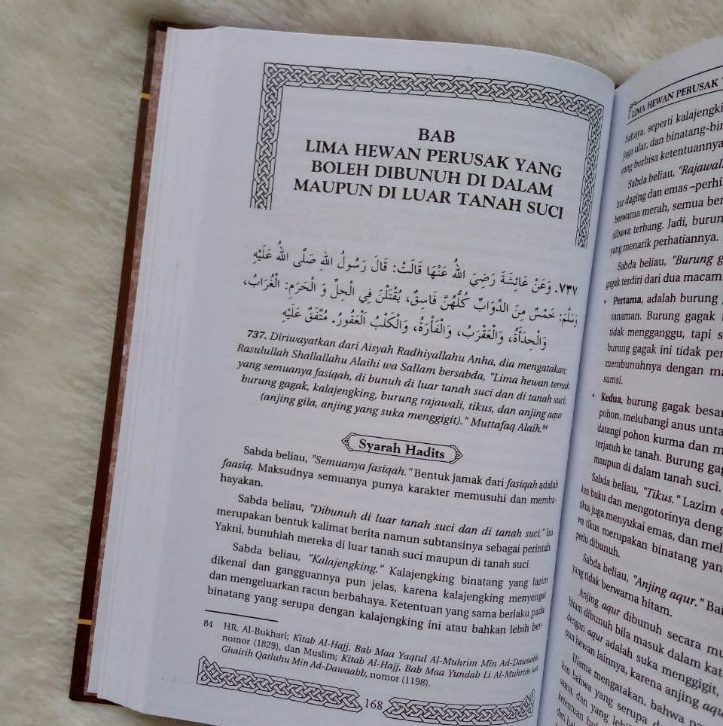 BAB
LIMA HEWAN PERUSAK YANG
BOLEH DIBUNUH DI DALAM
MAUPUN DI LUAR TANAH SUCI
٧٣٧. وَعَنْ عَائِشَةَ رَضِيَ اللهُ عَنْهَا قَالَتْ: قَالَ رَسُولُ اللهِ صَلَّى اللهُ عَلَيْهِ
وَسَلَّمَ: خَمْسٌ مِنَ الدَّوَابِّ كُلُّهُنَّ فَاسِقٌ، يُقْتَلْنَ فِي الْحِلِّ وَ الْحَرَمِ: الْغُرَابُ،
وَالْحِدَأَةُ، وَالْعَقْرَبُ، وَالْفَأْرَةُ، وَالْكَلْبُ الْعَقُورُ. مُتَّفَقٌ عَلَيْهِ
737. Diriwayatkan dari Aisyah Radhiyallahu Anha, dia mengatakan;
Rasulullah Shallallahu Alaihi wa Sallam bersabda, "Lima hewan ternak
yang semuanya fasiqah, di bunuh di luar tanah suci dan di tanah suci;
burung gagak, kalajengking, burung rajawali, tikus, dan anjing aqur
(anjing gila, anjing yang suka menggigit)." Muttafaq Alaih.⁸⁴
Syarah Hadits
Sabda beliau, "Semuanya fasiqah." Bentuk jamak dari fasiqah adalah
faasiq. Maksudnya semuanya punya karakter memusuhi dan memba-
hayakan.
Sabda beliau, "Dibunuh di luar tanah suci dan di tanah suci." Ini
merupakan bentuk kalimat berita namun subtansinya sebagai perintah.
Yakni, bunuhlah mereka di luar tanah suci maupun di tanah suci.
Sabda beliau, "Kalajengking." Kalajengking binatang yang lazim
dikenal dan gangguannya pun jelas, karena kalajengking menyengat
dan mengeluarkan racun berbahaya. Ketentuan yang sama berlaku pada
binatang yang serupa dengan kalajengking ini atau bahkan lebih ber-
84 HR. Al-Bukhari; Kitab Al-Hajj, Bab Maa Yaqtul Al-Muhrim Min Ad-Dawaabb,
nomor (1829), dan Muslim; Kitab Al-Hajj, Bab Maa Yundab Li Al-Muhrim
Ghairih Qatluhu Min Ad-Dawaabb, nomor (1198).
168
LIMA HEWAN PERUSAK
bahaya, seperti kalajengking
juga ular, dan binatang-bin
yang berbisa ketentuannya
Sabda beliau, "Rajawali
daging dan emas –perhi
berwarna merah, semua ben
dibawa terbang. Jadi, burun
yang menarik perhatiannya.
Sabda beliau, "Burung g
gagak terdiri dari dua macam
• Pertama, adalah burung
tanaman. Burung gagak
tidak mengganggu, tapi s
burung gagak ini tidak per
membunuhnya dengan ma
• Kedua, burung gagak besar
pohon, melubangi anus unta
datangi pohon kurma dan m
terjatuh ke tanah. Burung gag
maupun di dalam tanah suci.
Sabda beliau, "Tikus." Lazim d
kan buku dan mengotorinya deng
tikus juga menyukai emas, dan mel
wa tikus merupakan binatang yan
perlu dibunuh.
Sabda beliau, "Anjing aqur." Ba
yang tidak berwarna hitam.
Anjing aqur dibunuh secara mu
dibunuh bila masuk dalam kat
dengan aqur adalah suka menggigit,
hewan lainnya, karena anjing aqu
Ulama mengatakan, bahwa p